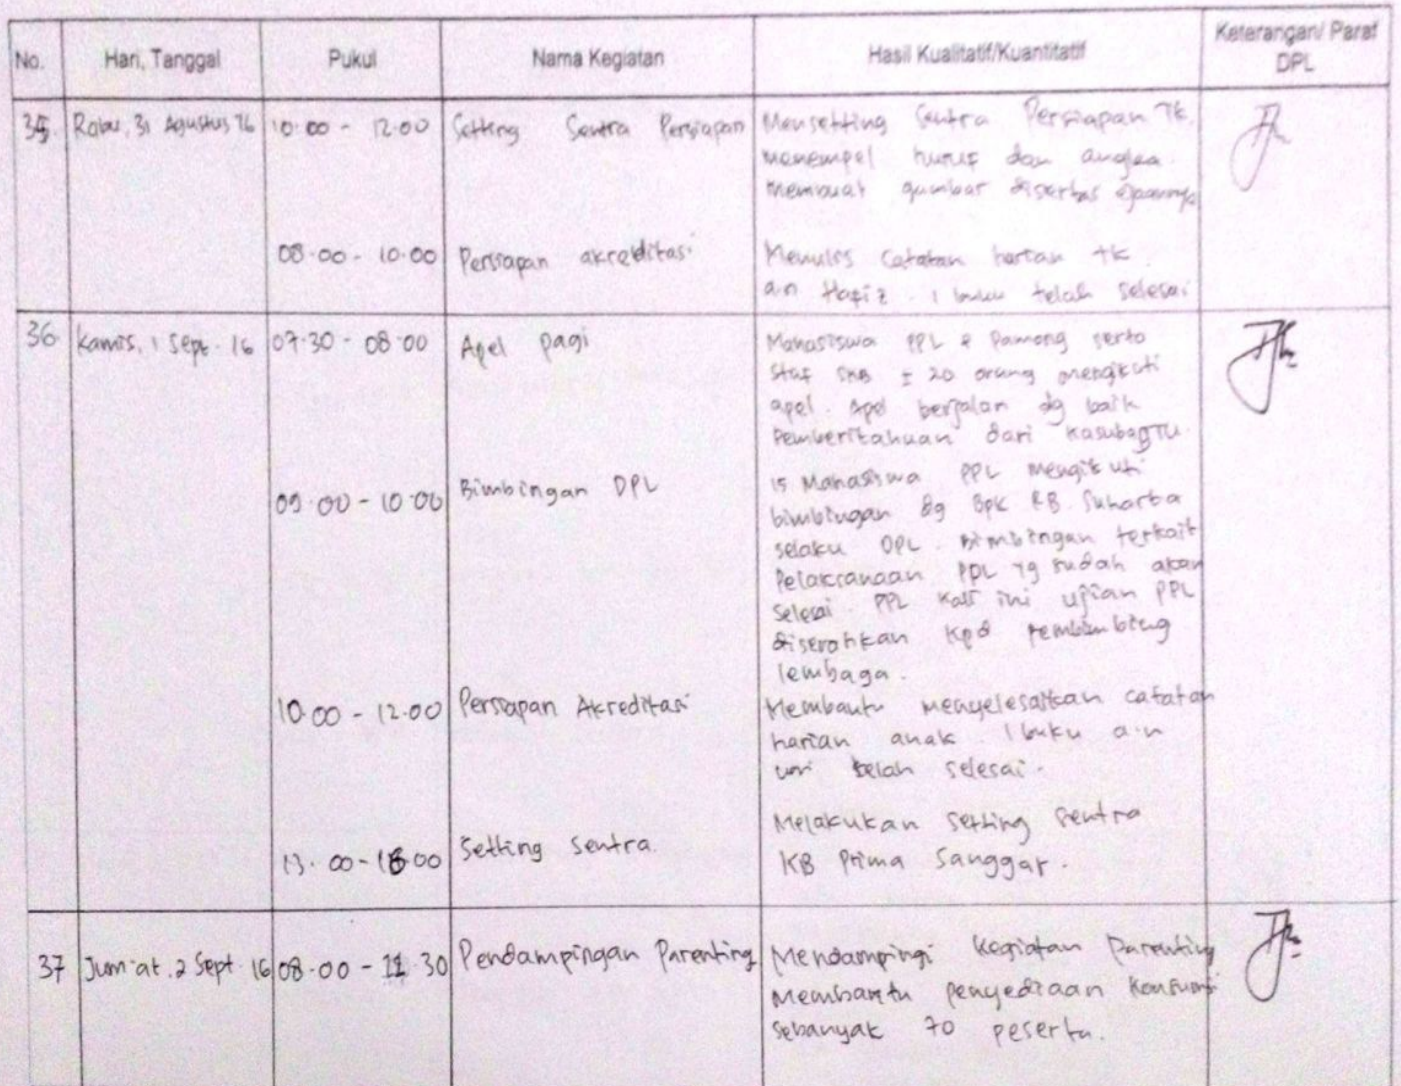 No. Hari, Tanggal Pukul Nama Kegiatan Hasil Kualitatif/Kuantitatif Keterangan/ Paraf
DPL
35 Rabu, 31 Agustus 16 10.00 - 12.00 Setting Sentra Persiapan Mensetting Sentra Persiapan TK.
menempel huruf dan angka
membuat gambar disertas ejaannya
08.00 - 10.00 Persiapan akreditasi Menulis Catatan harian TK.
a.n Hafiz. 1 buku telah selesai
36 Kamis, 1 Sept. 16 07.30 - 08.00 Apel pagi Mahasiswa PPL & Pamong serta
staf SKB ± 20 orang mengikuti
apel. Apel berjalan dg baik
Pemberitahuan dari Kasubag TU.
09.00 - 10.00 Bimbingan DPL 15 Mahasiswa PPL mengikuti
bimbingan dg Bpk RB. Suharta
selaku DPL. Bimbingan terkait
Pelaksanaan PPL yg sudah akan
selesai. PPL kali ini ujian PPL
diserahkan kpd pembimbing
lembaga.
10.00 - 12.00 Persiapan Akreditasi Membantu menyelesaikan catatan
harian anak. 1 buku a.n
telah selesai.
13.00 - 16.00 Setting Sentra. Melakukan setting sentra
KB Prima Sanggar.
37 Jum'at, 2 Sept. 16 08.00 - 11.30 Pendampingan Parenting Mendampingi kegiatan parenting
Membantu penyediaan konsumsi
sebanyak 70 peserta.